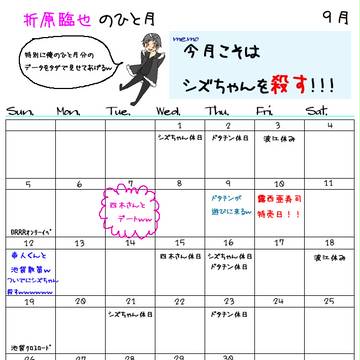 折原臨也 のひと月
9月
特別に俺のひと月分の
データをタダで見せてあげるw
memo
今月こそは
シズちゃんを殺す!!!
Sun. Mon. Tue. Wed. Thu. Fri. Sat.
1 2 3 4
シズちゃん休日 ドタチン休日 波江休み
5 6 7 8 9 10 11
四木さんと
デートww
ドタチンが
遊びに来るw
露西亜寿司
特売日!!
DRRRオンリーイベ
12 13 14 15 16 17 18
帝人くんと
池袋散策w
ついでにシズちゃん
殺すwwwwww
四木さん休日 シズちゃん休日
ドタチン休日
波江休み
19 20 21 22 23 24 25
シズちゃん休日 ドタチン休日
池袋クロスロード
26 27 28 29 30